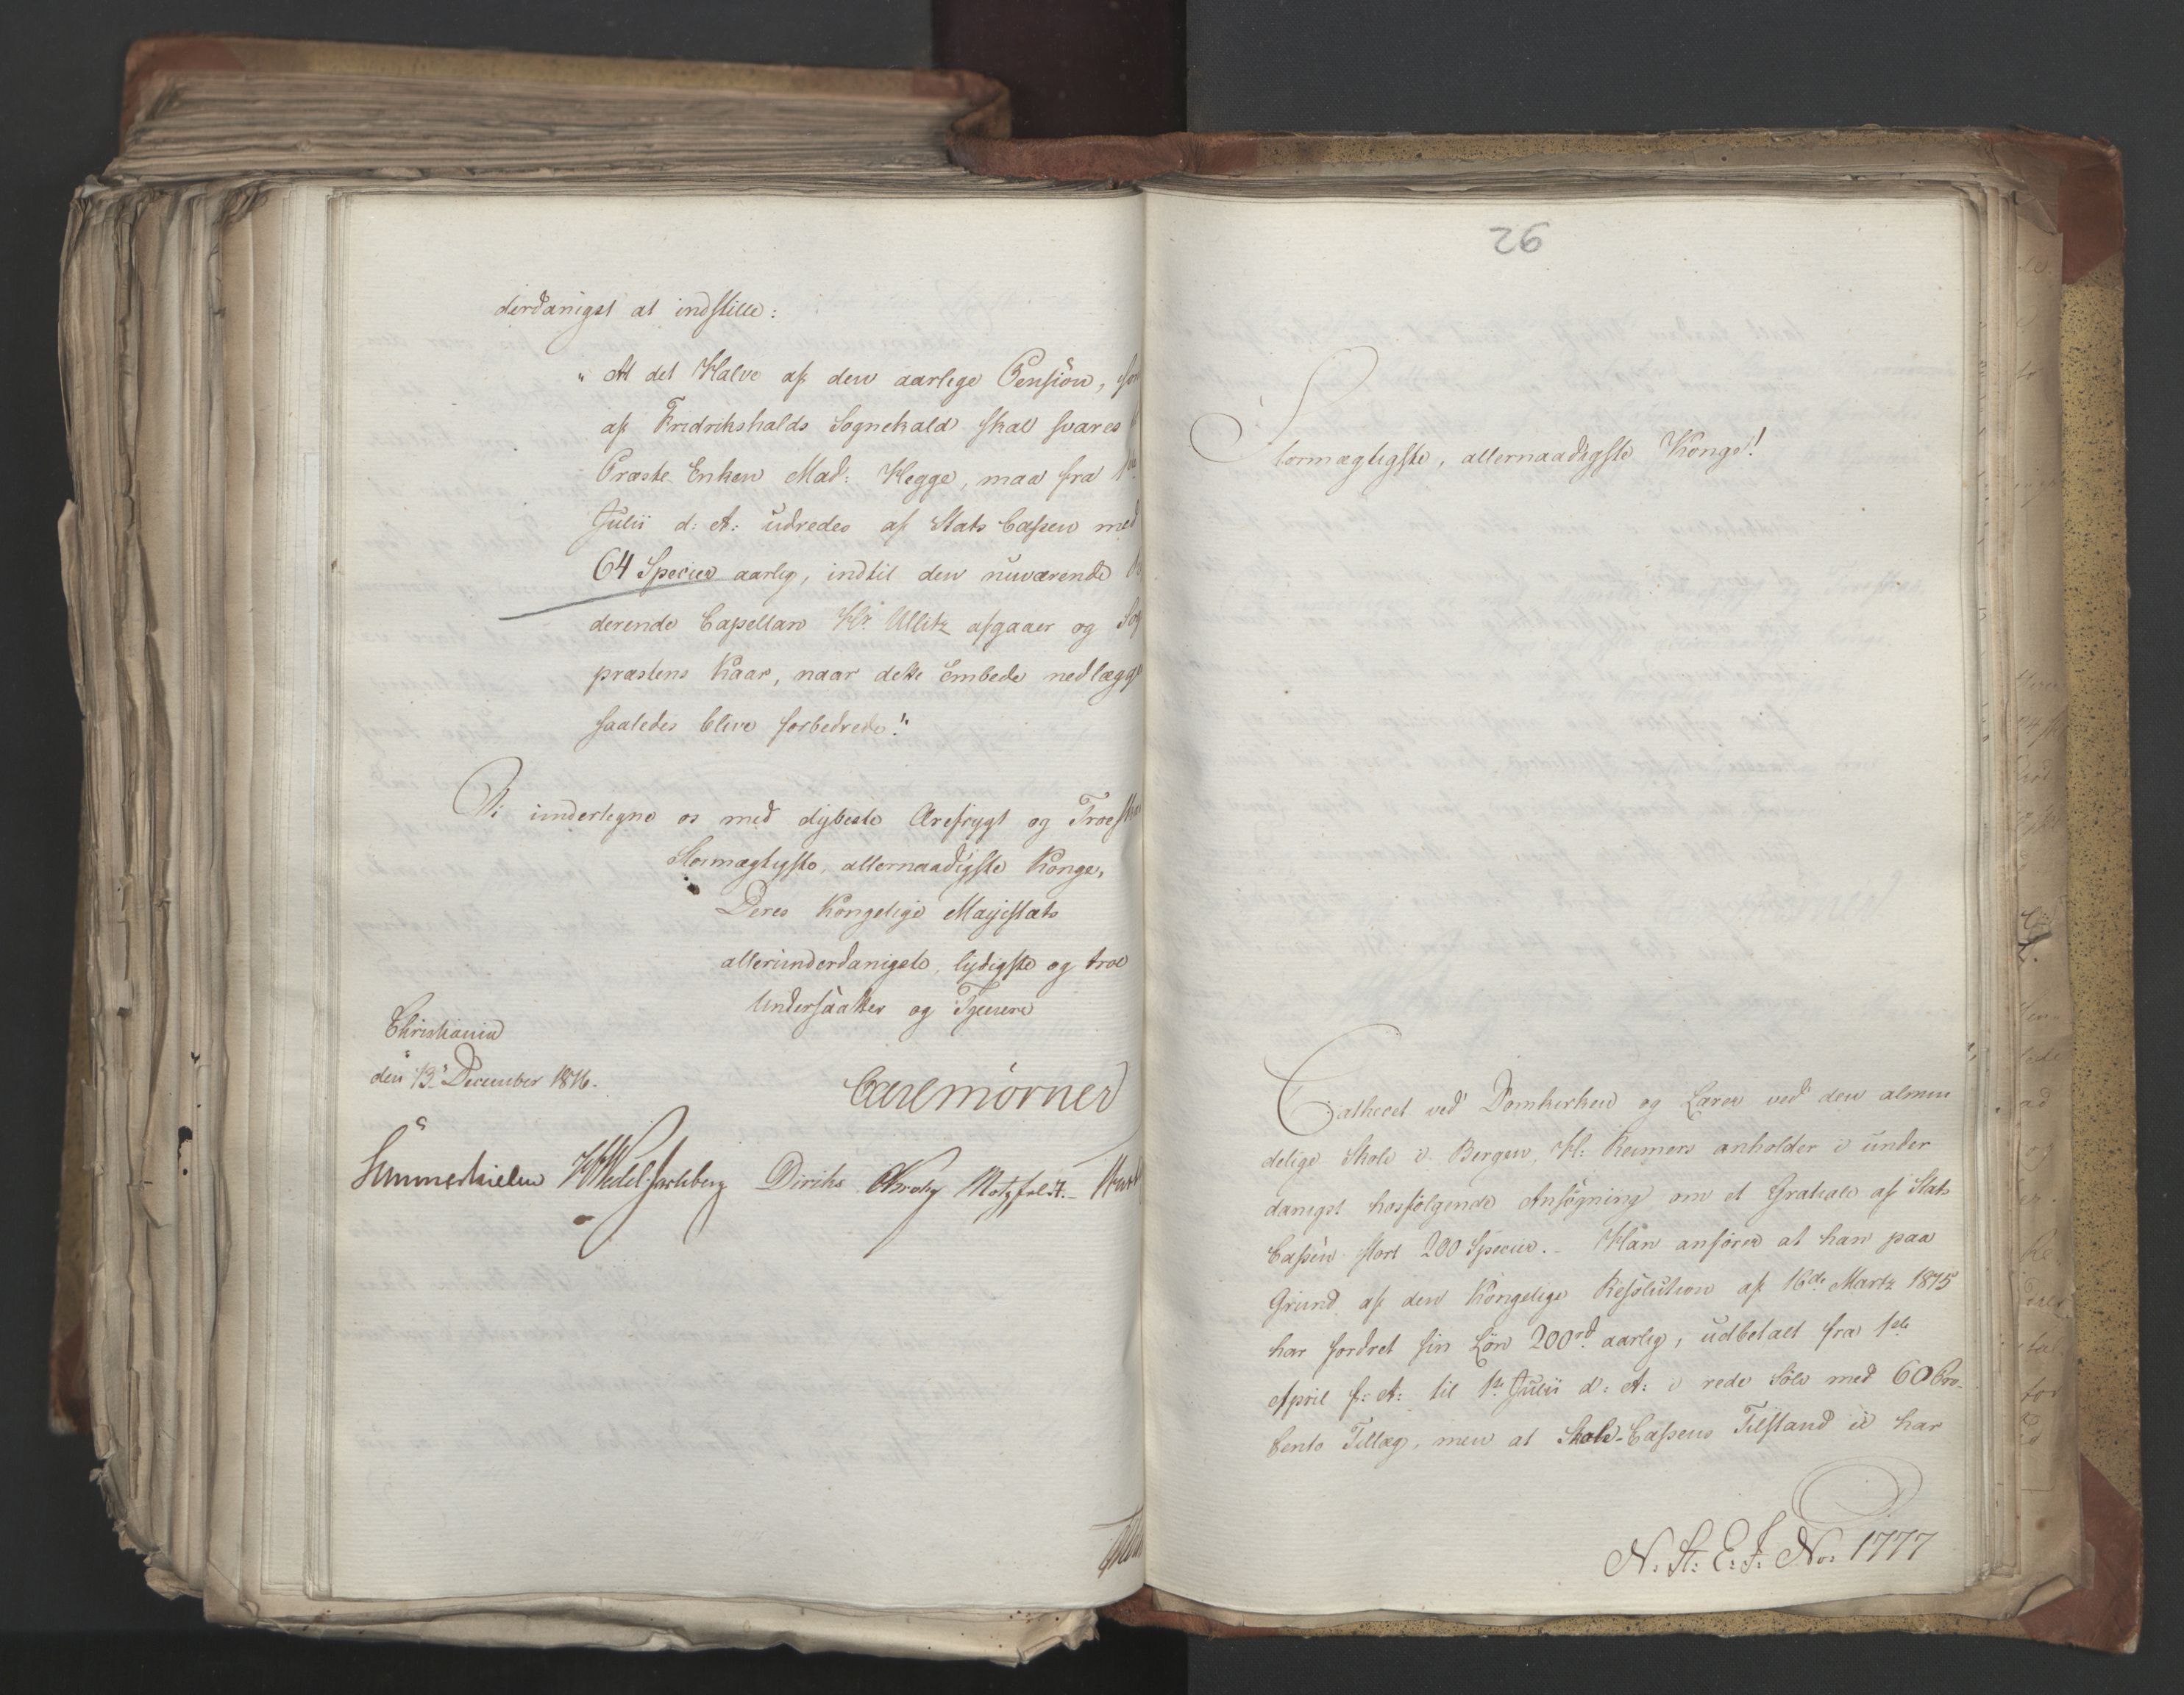 derdanigst at indstille:
"At det Halve af den aarlige Pension, som
af Fridrikshalds Sognekald skal svares
Præste Enken Mad: Hegge, maa fra 1ste
Julii d: A: udredes af Stats Cassen med
64 Species aarlig, indtil den nuværende
derende Capellan Hr Ullitz afgaaer og Sog
præstens Kaar, naar dette Embede nedlægges
saaledes blive forbedrede."
Vi undertegne os med dybeste Ærefrygt og Troeska
Stormægtigste, allernaadigste Konge,
Deres Kongelige Majestæts
allerunderdanigste, lydigste og troe
Undersaatter og Tjenere
Christiania
den 13de December 1816.
Carl Mörner
Sommerhielm HWedel Jarlsberg Diriks Krohg Motzfeldt.
26
Stormægtigste, allernaadigste Konge!
Cathecet ved Domkirken og Lærer ved den almin
delige Skole i Bergen, H: Reimers anholder i under
danigst hosfølgende Ansøgning om et Gratiale af Stats
Cassen stort 200 Species. – Han anfører at han paa
Grund af den Kongelige Resolution af 16de Martz 1815
har fordret sin Løn 200rd aarlig, udbetalt fra 1ste
April f: A: til 1ste Julii d: A: i rede Sölv med 60 Pro-
cento Tillæg, men at Skole-Cassens Tilstand ei har
N. St: E: F: No. 1777